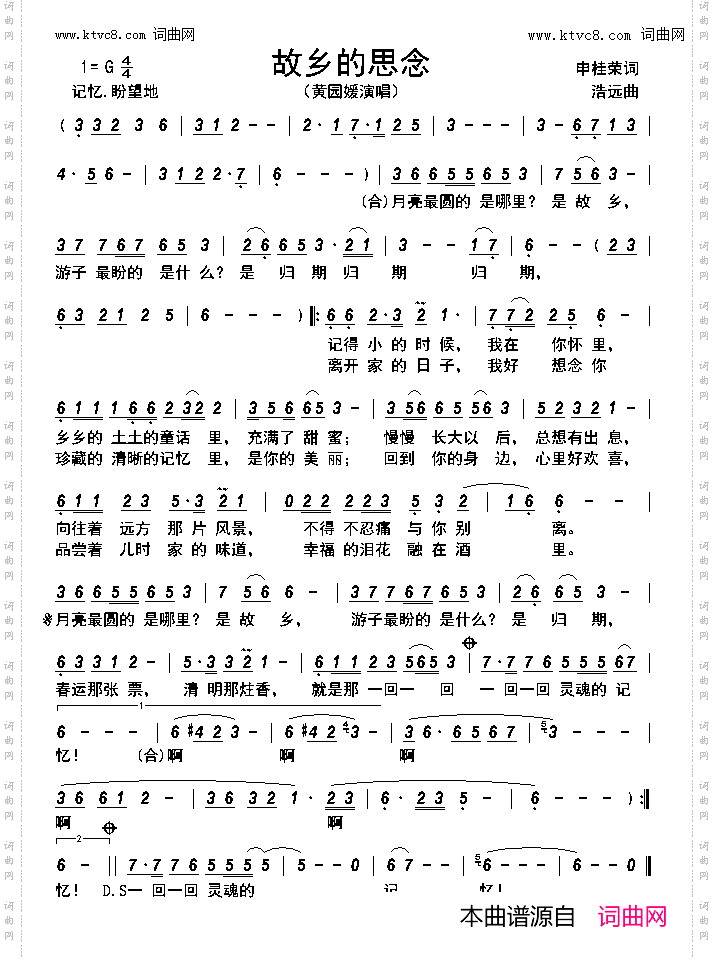 www.ktvc8.com 词曲网 www.ktvc8.com 词曲网
故乡的思念
1=G 4/4 申桂荣词
记忆.盼望地 （黄园媛演唱） 浩远曲
( 3 3 2 3 6 | 3 1 2 - - | 2· 1 7·1 1 2 5 | 3 - - - | 3 - - 6 7 1 3 |
4· 5 6 - | 3 1 2 2·7 | 6 - - - ) | 3 6 6 5 5 6 5 3 | 7 5 6 3 - |
(合)月亮最圆的 是哪里？ 是 故 乡，
3 7 7 6 7 6 5 3 | 2 6 6 5 3·2 1 | 3 - - 1 7 | 6 - - ( 2 3 |
游子 最盼的 是什 么？ 是 归 期归 期 归 期，
6 3 2 1 2 5 | 6 - - - ) ‖: 6 6 2·3 2 1· | 7 7 2 2 5 6 - |
记得 小 的 时 候， 我在 你怀 里，
离开 家 的 日 子， 我好 想念 你
6 1 1 1 6 6 2 3 2 2 | 3 5 6 6 5 3 - | 3 5 6 6 5 5 6 3 | 5 2 3 2 1 - |
乡乡的 土土的童话 里， 充满了 甜 蜜； 慢慢 长大以 后， 总想有出 息，
珍藏的 清晰的记忆 里， 是你的 美 丽； 回到 你的身 边， 心里好欢 喜，
6 1 1 2 3 5·3 2 1 | 0 2 2 2 2 3 5 3 2 | 1 6 6 - - |
向往着 远方 那 片 风景， 不得 不忍痛 与 你 别 离。
品尝着 儿时 家 的 味道， 幸福 的泪花 融 在 酒 里。
3 6 6 5 5 6 5 3 | 7 5 6 6 - | 3 7 7 6 7 6 5 3 | 2 6 6 5 3 - |
月亮最圆的 是哪里？ 是 故 乡， 游子最盼的 是什么？ 是 归 期，
6 3 3 1 2 - | 5·3 3 2 1 - | 6 1 1 2 3 5 6 5 3 | 7·7 7 6 5 5 5 6 7 |
春运那张 票， 清 明那炷香， 就是那 一回一 回 一 回一回 灵魂的 记
1
6 - - - | 6 #4 2 3 - | 6 #4 2 3 - | 3 6· 6 5 6 7 | 3 - - - |
忆！ (合)啊 啊 啊
3 6 6 1 2 - | 3 6 3 2 1· 2 3 | 6· 2 3 5 - | 6 - - - ) :‖
啊 啊
2
6 - - ‖ 7·7 7 6 5 5 5 5 | 5 - - 0 | 6 7 - - | 6 - - - | 6 - - 0 ‖
忆！ D.S一 回一回 灵魂的 记 忆！
本曲谱源自 词曲网